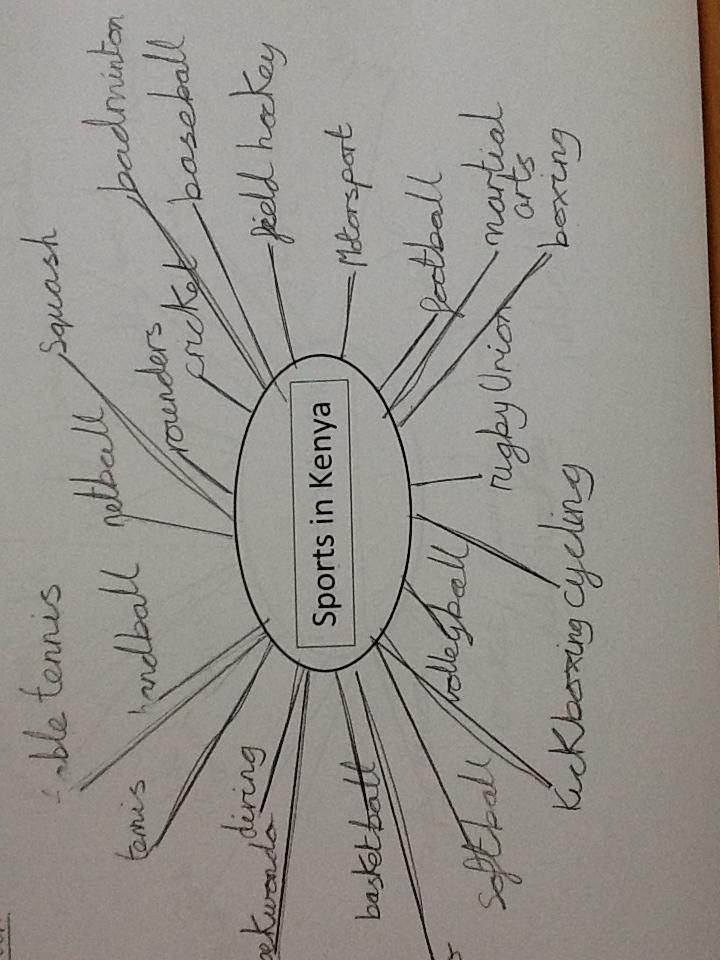 table tennis
squash
netball
badminton
handball
tennis
rounders
cricket
baseball
diving
ekwondo
field hockey
Sports in Kenya
Motorsport
basketball
football
volleyball
rugby Union
softball
martial
arts
boxing
Kickboxing
cycling